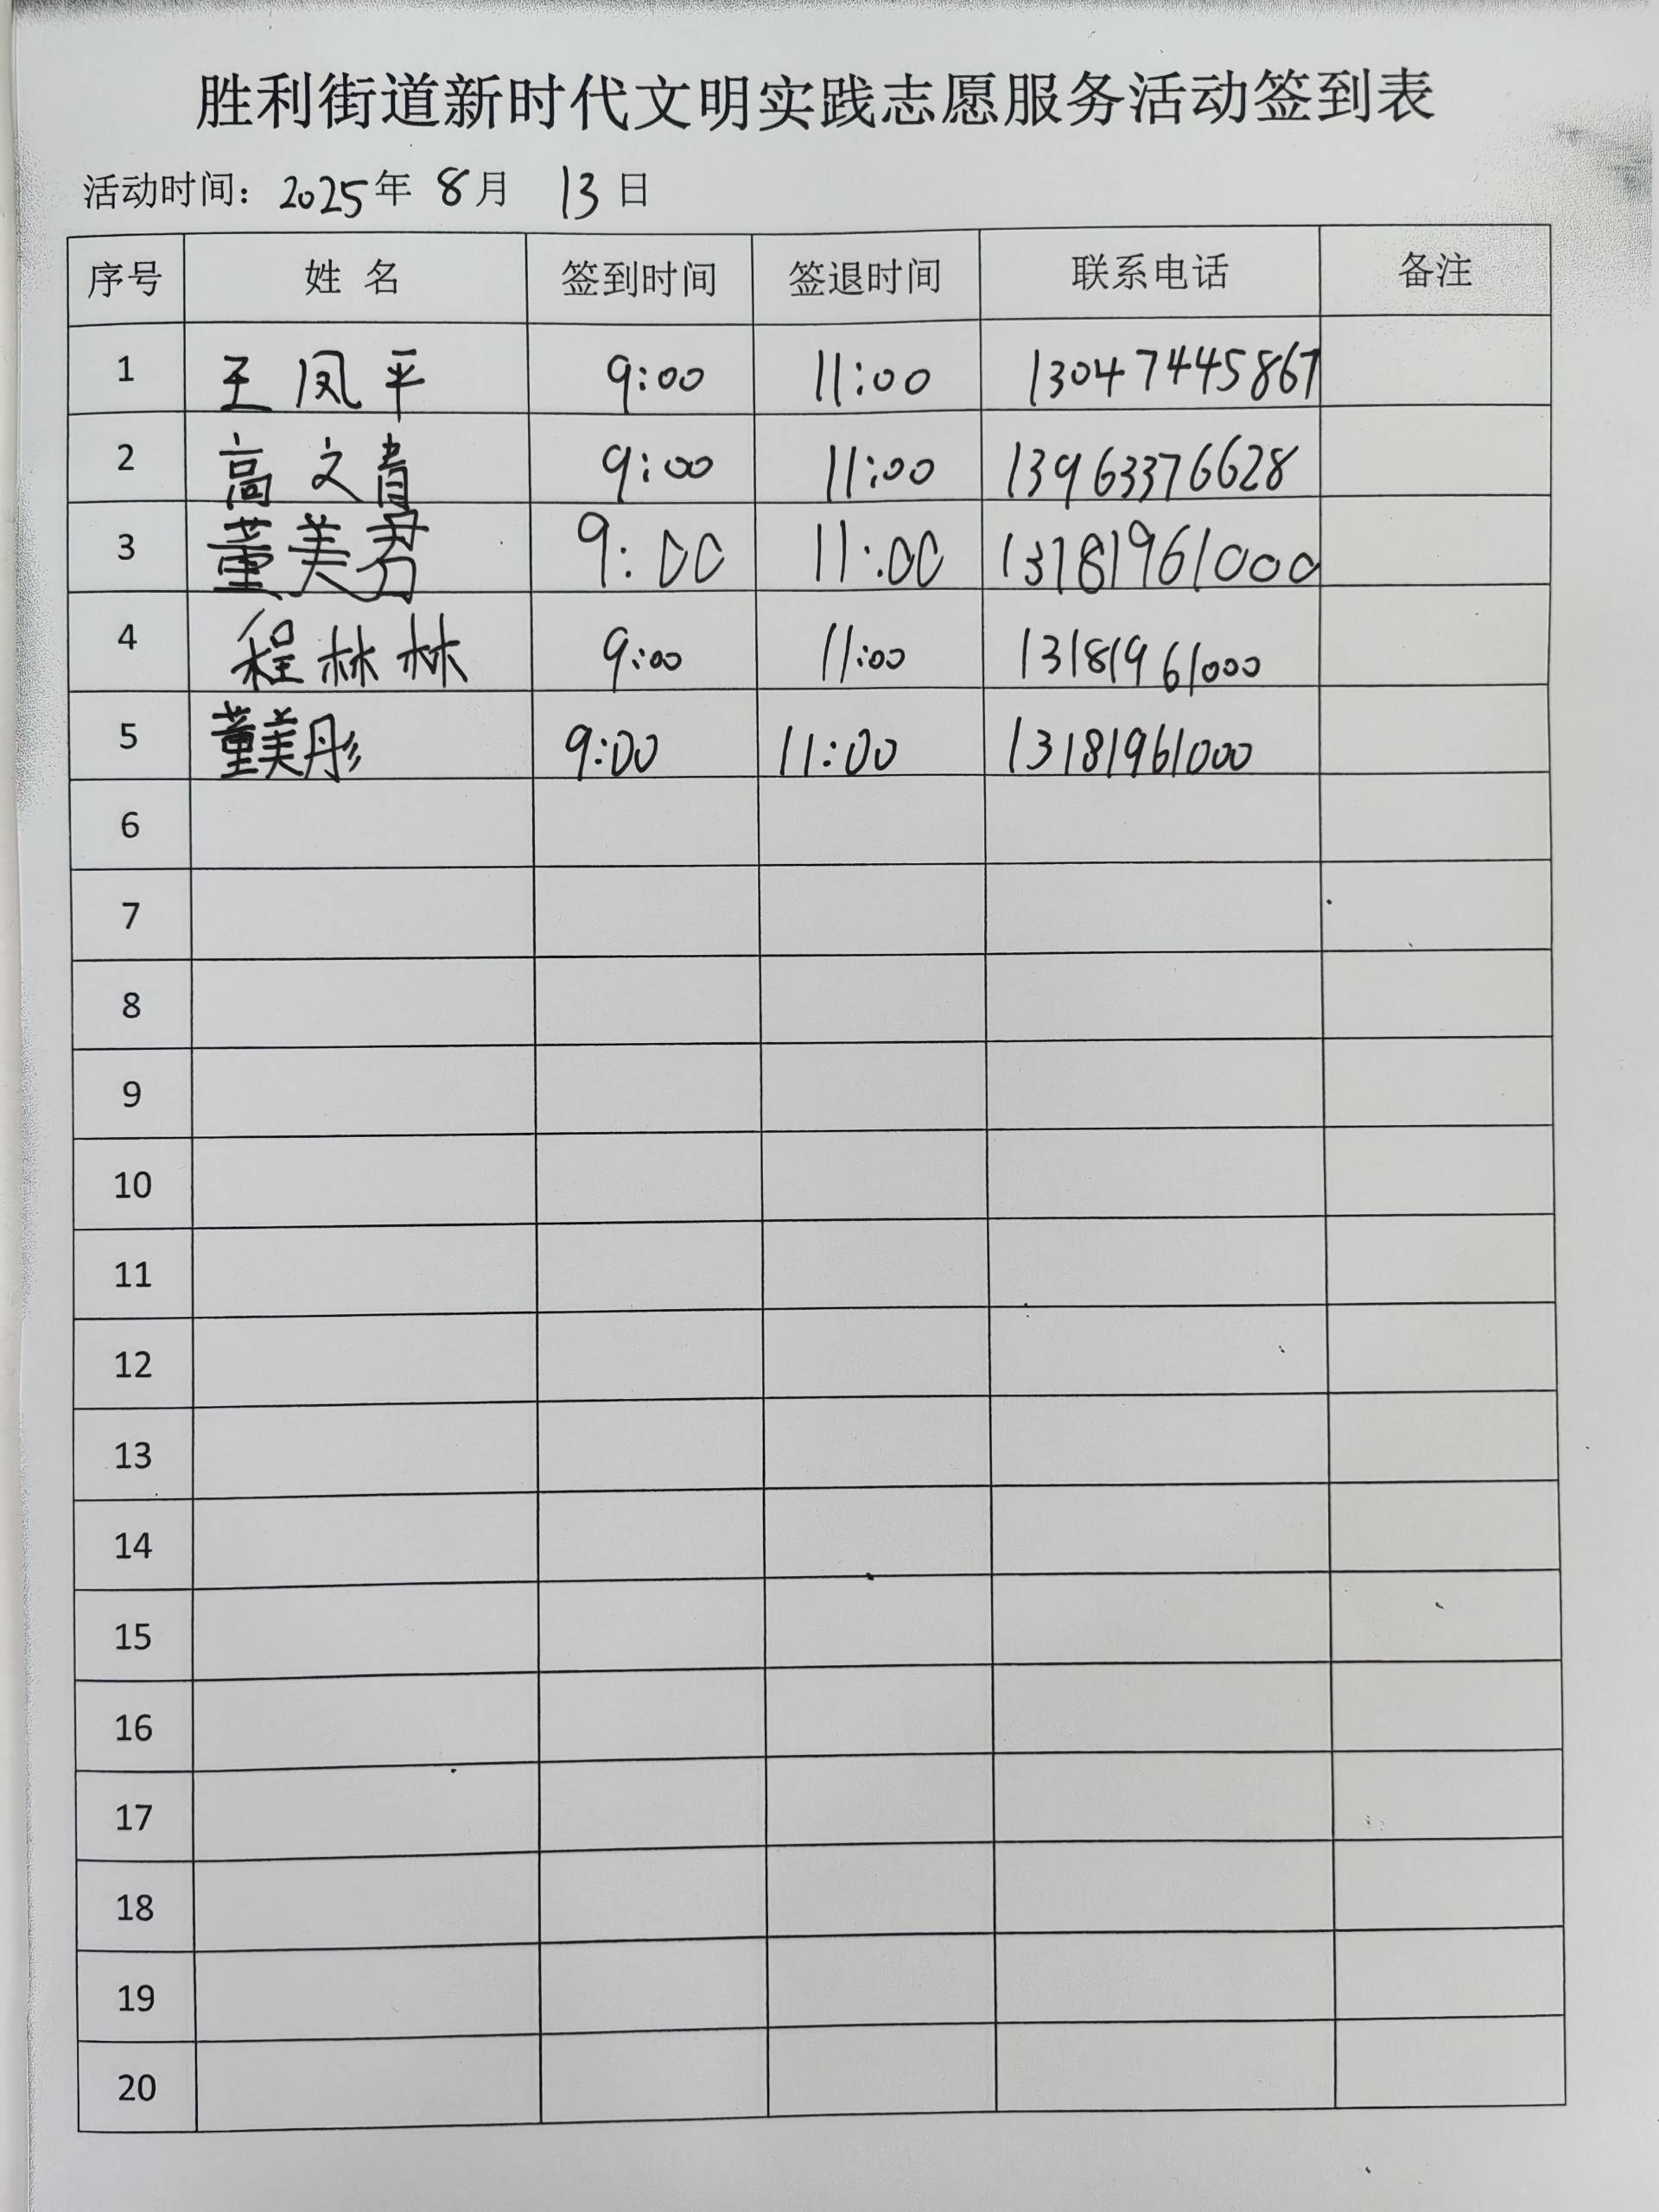 胜利街道新时代文明实践志愿服务活动签到表
活动时间：2025年 8月 13日
序号 姓 名 签到时间 签退时间 联系电话 备注
1 王凤平 9:00 11:00 13047445867
2 高文青 9:00 11:00 13963376628
3 董美君 9:00 11:00 13181961000
4 程林林 9:00 11:00 13181961000
5 董美彤 9:00 11:00 13181961000
6
7
8
9
10
11
12
13
14
15
16
17
18
19
20